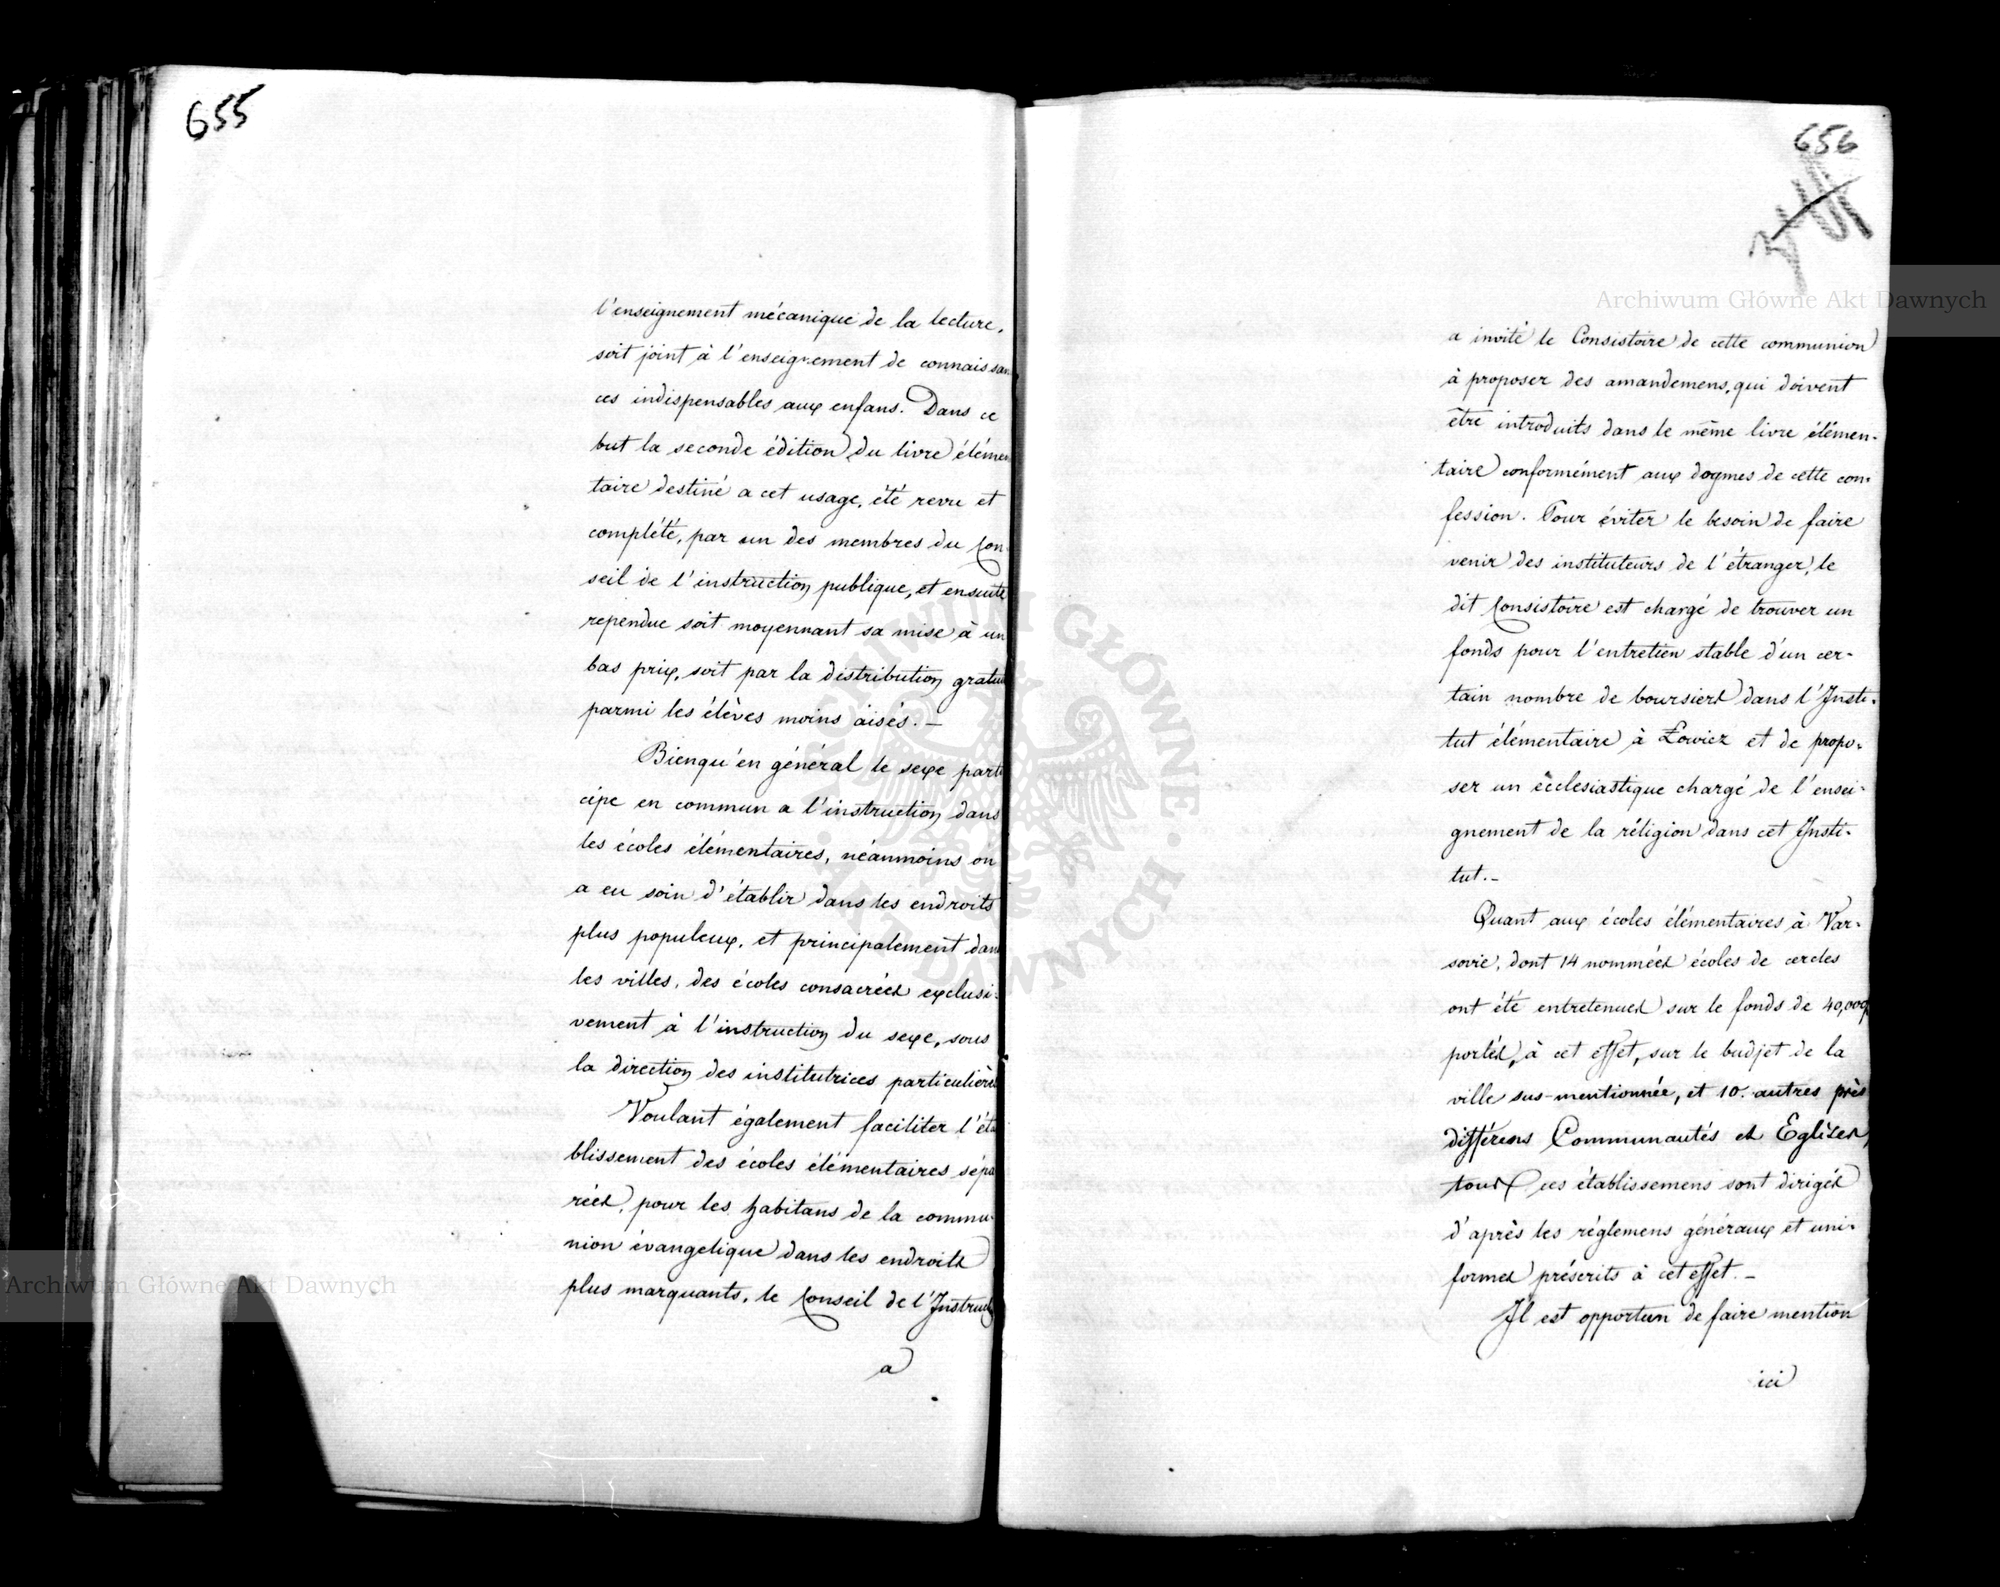 655
l'enseignement mécanique de la lecture,
soit joint à l'enseignement de connaissan
ces indispensables aux enfans. Dans ce
but la seconde édition du livre élémen
taire destiné a cet usage, été revu et
complété, par un des membres du Con
seil de l'instruction publique, et ensuite
rependue soit moyennant sa mise à un
bas prix, soit par la distribution gratui
parmi les élèves moins aisés. —
Bienqu'en général le sexe parti
cipe en commun a l'instruction dans
les écoles élémentaires, néanmoins on
a eu soin d'établir dans les endroits
plus populeux, et principalement dans
les villes, des écoles consacrées exclusi-
vement à l'instruction du sexe, sous
la direction des institutrices particulières
Voulant également faciliter l'éta
blissement des écoles élémentaires sépa
rées, pour les habitans de la commu-
nion évangelique dans les endroits
plus marquants, le Conseil de l'Instruct
a
656
a invité le Consistoire de cette communion
à proposer des amandemens, qui doivent
être introduits dans le même livre élémen-
taire conformément aux dogmes de cette con-
fession. Pour éviter le besoin de faire
venir des instituteurs de l'étranger, le
dit Consistoire est chargé de trouver un
fonds pour l'entretien stable d'un cer-
tain nombre de boursiers dans l'Insti-
tut élémentaire à Łowicz et de propo-
ser un écclesiastique chargé de l'ensei-
gnement de la réligion dans cet Insti-
tut. –
Quant aux écoles élémentaires à Var-
sovie, dont 14 nommées écoles de cercles
ont été entretenues sur le fonds de 40,000
portés, à cet effet, sur le budjet de la
ville sus-mentionnée, et 10. autres près
différens Communautés et Eglises,
tous ces établissemens sont dirigés
d'après les réglemens généraux et uni-
formes préscrits à cet effet. –
Il est opportun de faire mention
ici
Archiwum Główne Akt Dawnych
Archiwum Główne Akt Dawnych
ARCHIWUM GŁÓWNE · AKT DAWNYCH ·